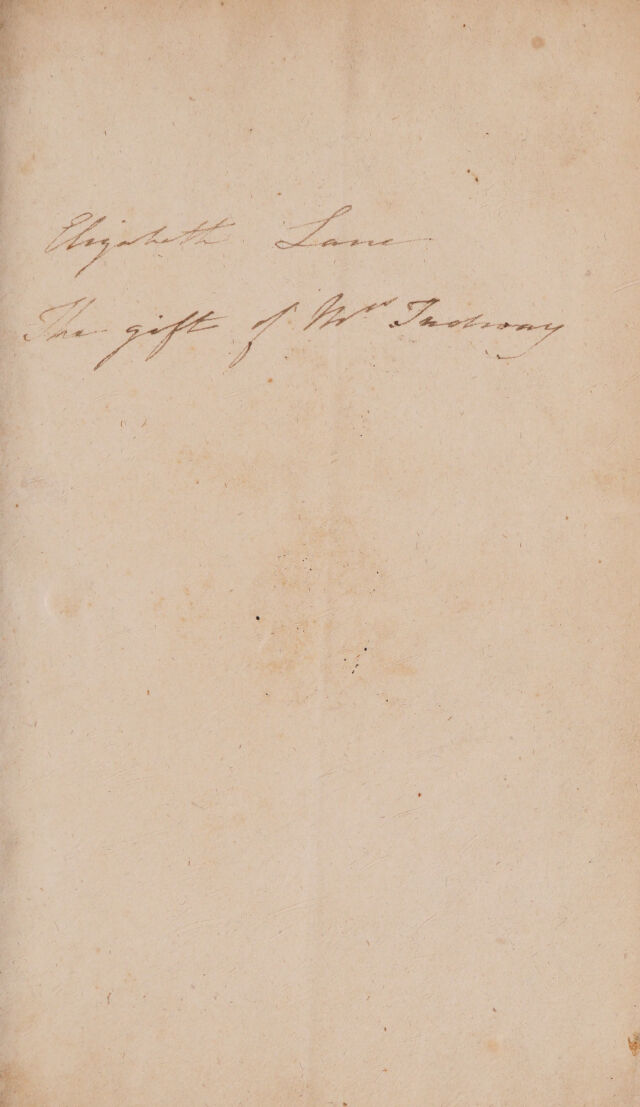 Elizabeth Lane
The gift of Mrs Tudway